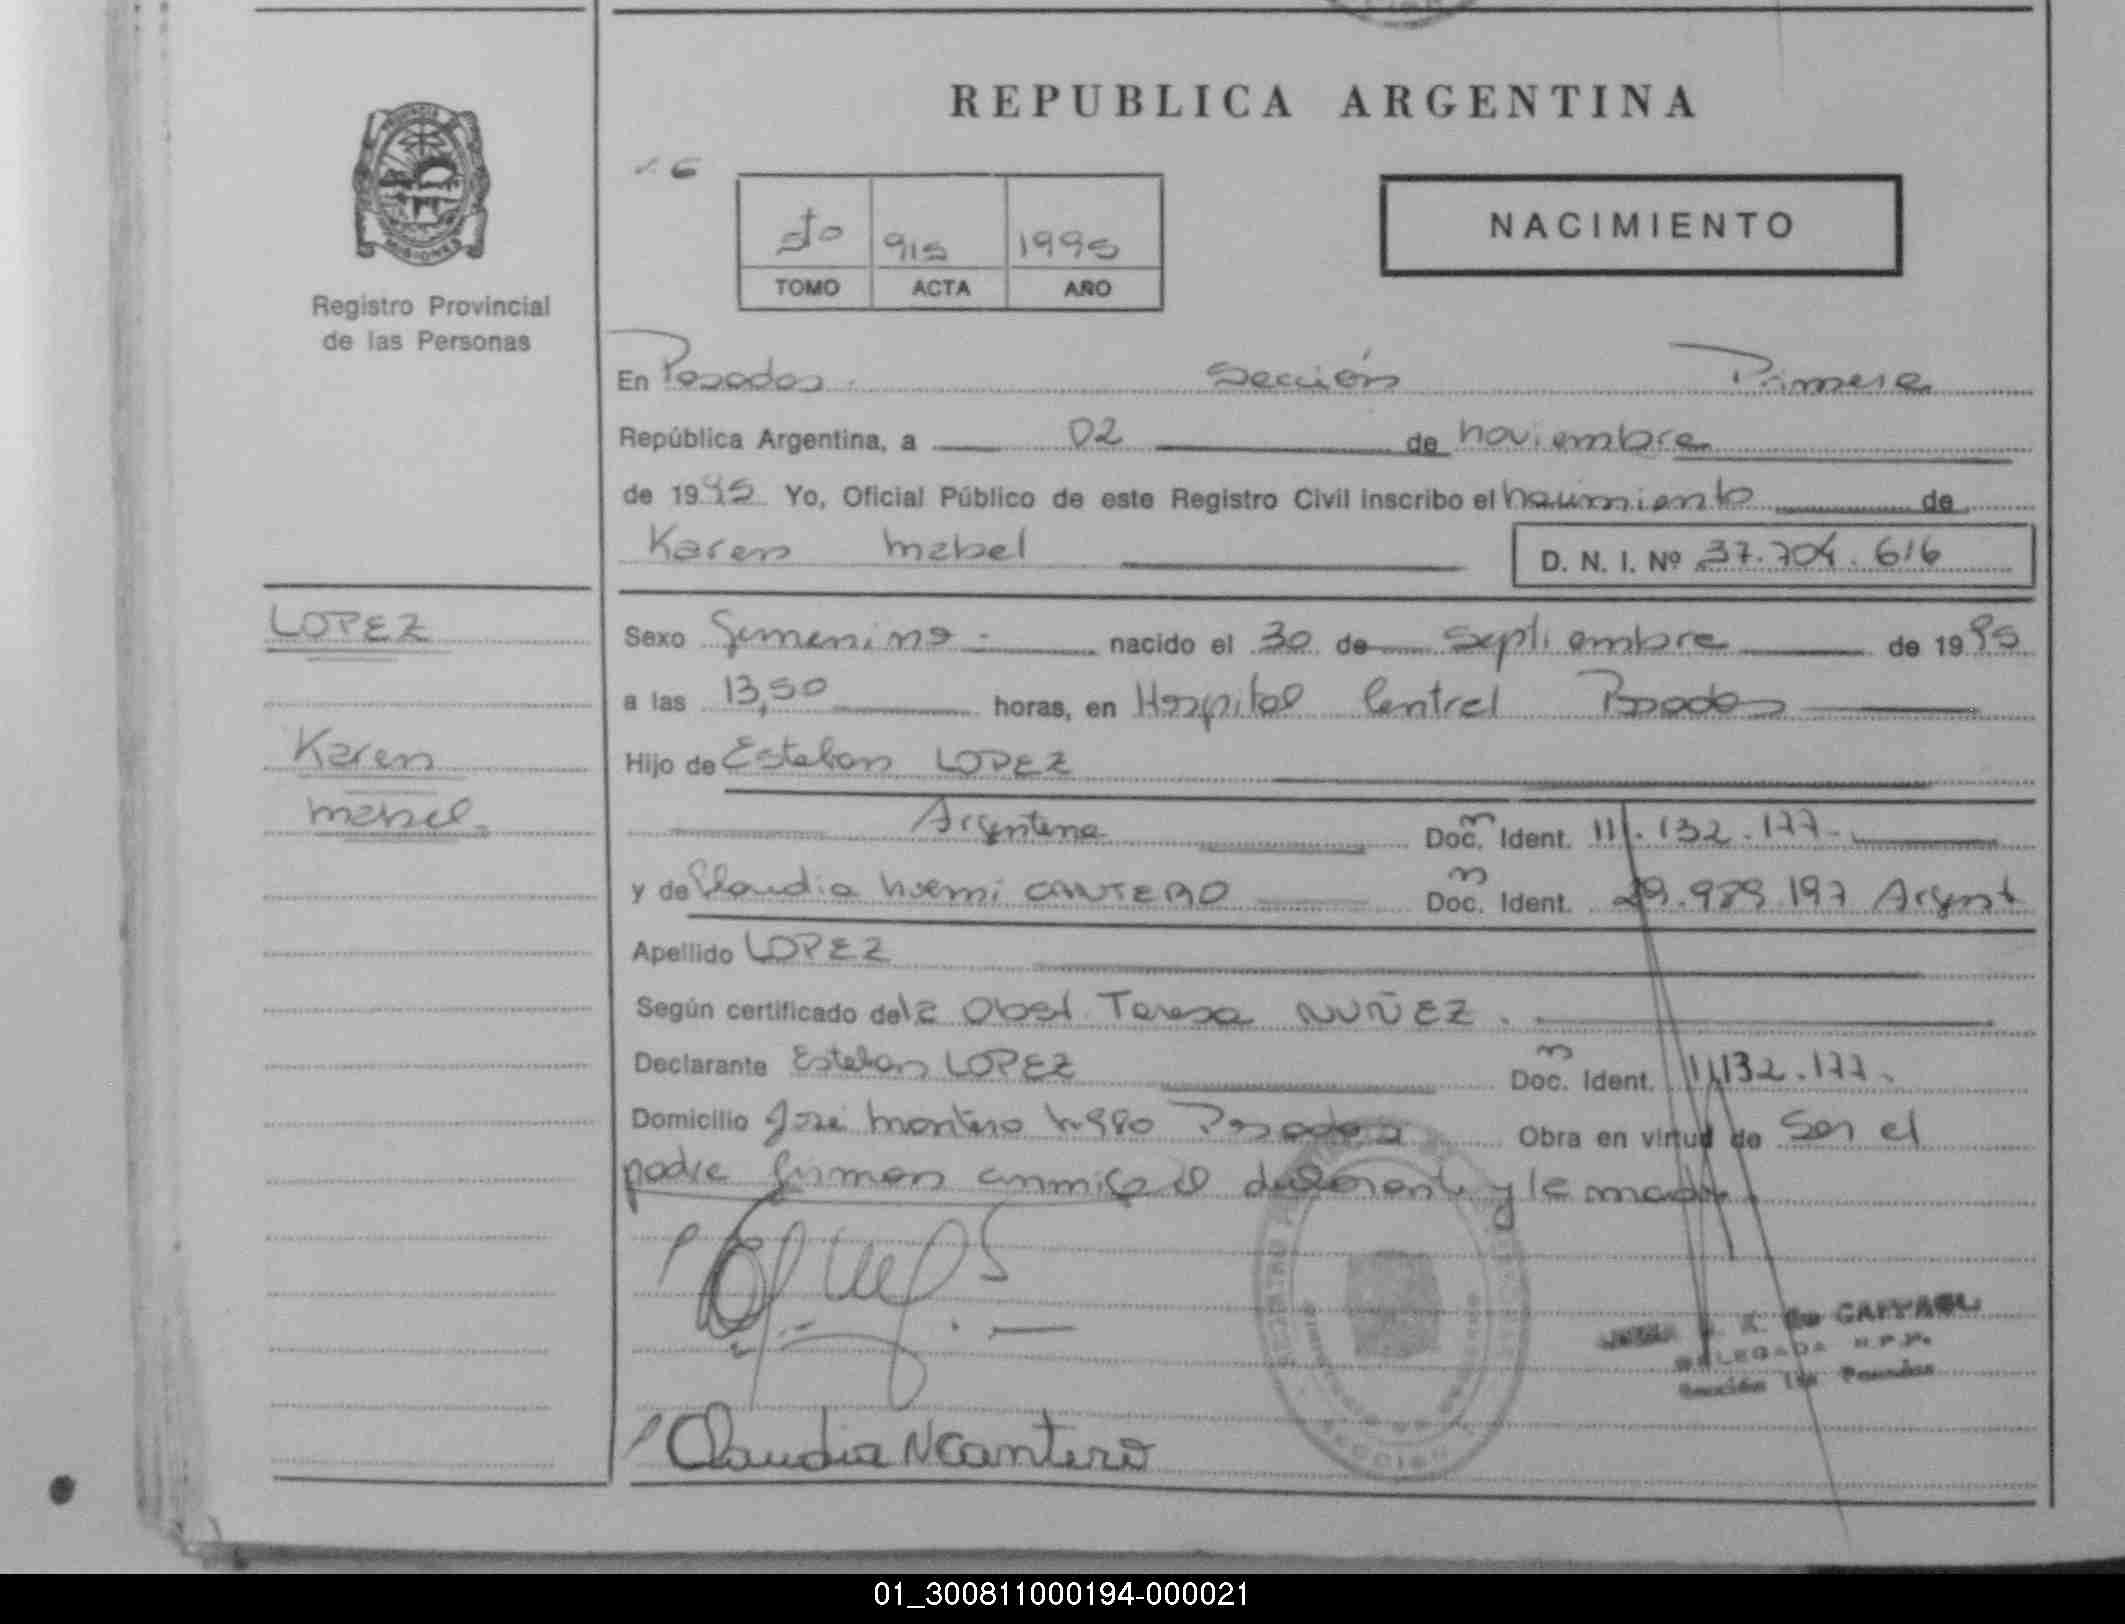 REPUBLICA ARGENTINA
NACIMIENTO
5to 915 1995
TOMO ACTA AÑO
MISIONES
Registro Provincial
de las Personas
En Posadas Sección Primera
República Argentina, a 02 de noviembre
de 1995 Yo, Oficial Público de este Registro Civil inscribo el nacimiento de
Karen Mabel D. N. I. Nº 37.704.616
LOPEZ
Karen
Mabel
Sexo femenino nacido el 30 de septiembre de 1995
a las 13,50 horas, en Hospital Central Posadas
Hijo de Esteban LOPEZ
Argentina Doc. Ident. 11.132.177
y de Claudia Noemi CANTERO Doc. Ident. 29.989.197 Argent
Apellido LOPEZ
Según certificado de la Obst. Teresa NUÑEZ.
Declarante Esteban LOPEZ Doc. Ident. 11.132.177.
Domicilio José Montero Posadas Obra en virtud de Ser el
padre firman conmigo el declarante y la madre
Claudia N Cantero
DELEGADA R.P.P.
Sección 1ra Posadas
01_300811000194-000021